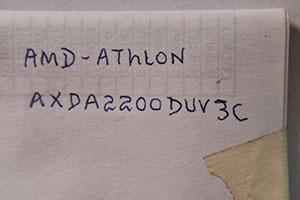 AMD-AThLON
AXDA2200DUV3C